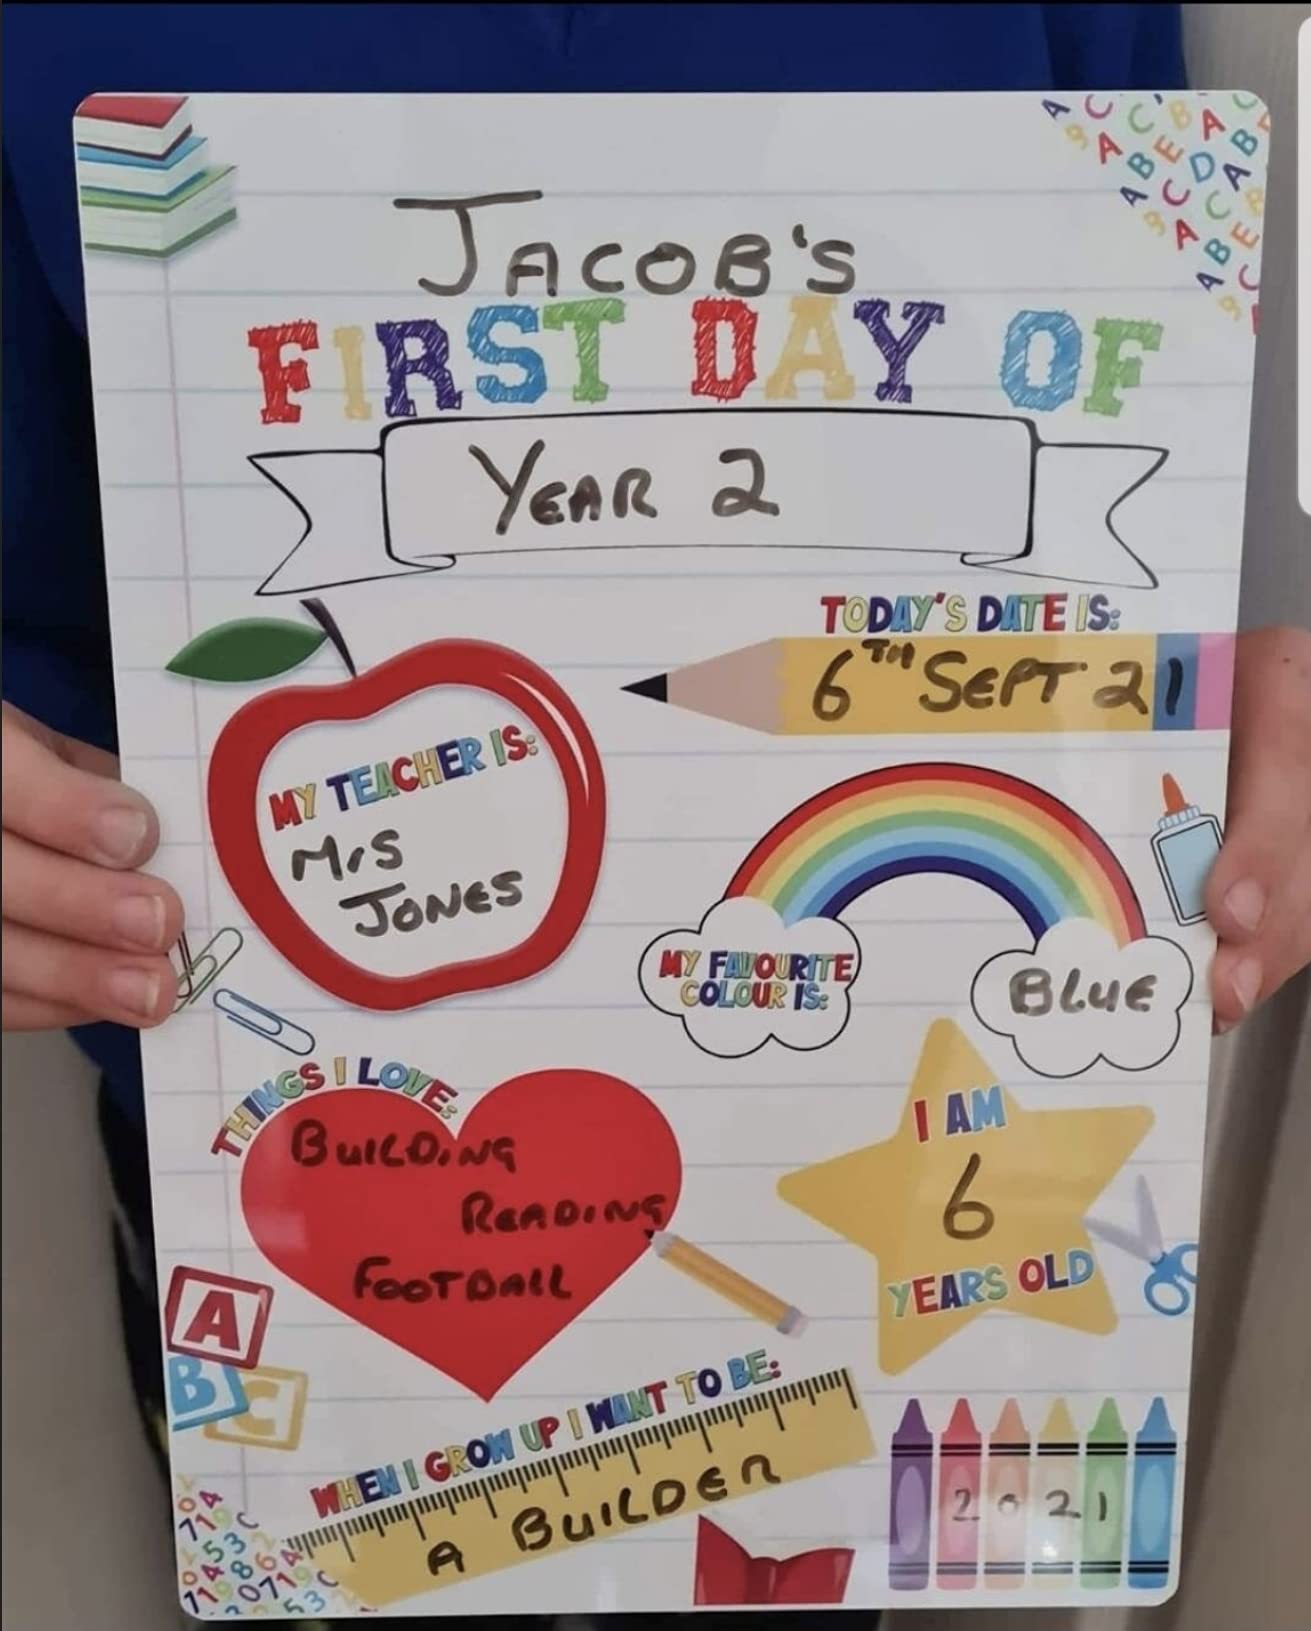 JACOB'S
FIRST DAY OF
YEAR 2
TODAY'S DATE IS:
6TH SEPT 21
MY TEACHER IS:
MRS
JONES
MY FAVOURITE
COLOUR IS:
BLUE
THINGS I LOVE:
BUILDING
READING
FOOTBALL
I AM
6
YEARS OLD
WHEN I GROW UP I WANT TO BE:
A BUILDER
A
B C
2021